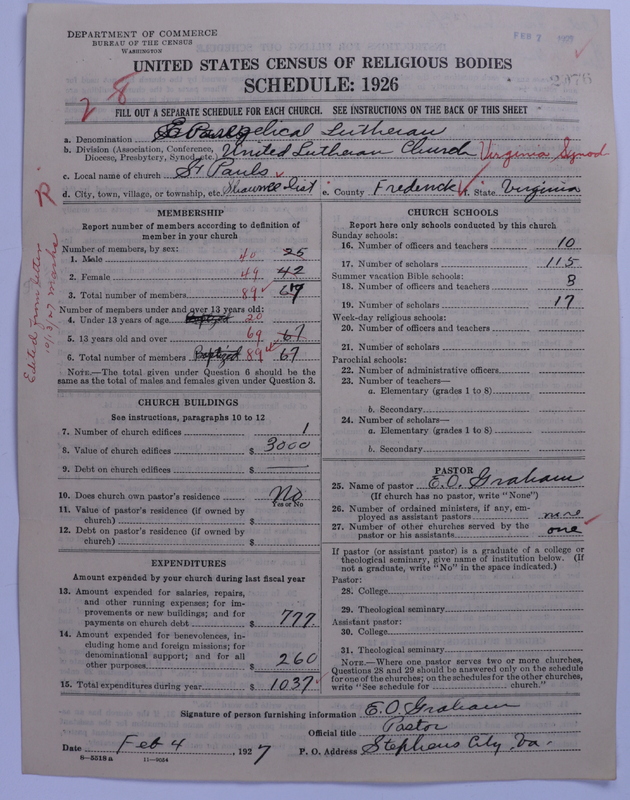 DEPARTMENT OF COMMERCE
BUREAU OF THE CENSUS
WASHINGTON
FEB 7
UNITED STATES CENSUS OF RELIGIOUS BODIES
SCHEDULE: 1926
28
FILL OUT A SEPARATE SCHEDULE FOR EACH CHURCH. SEE INSTRUCTIONS ON THE BACK OF THIS SHEET
a. Denomination Evangelical Lutheran
b. Division (Association, Conference, Diocese, Presbytery, Synod, etc.) United Lutheran Church Virginia Synod
c. Local name of church St Pauls
d. City, town, village, or township, etc. Shawnee Dist e. County Frederick f. State Virginia
Edited from letter
10/3/27 Marks
MEMBERSHIP
Report number of members according to definition of
member in your church
Number of members, by sex:
1. Male 40 25
2. Female 49 42
3. Total number of members 89 67
Number of members under and over 13 years old:
4. Under 13 years of age 20
5. 13 years old and over 69 67
6. Total number of members Baptized 89 67
NOTE.—The total given under Question 6 should be the
same as the total of males and females given under Question 3.
CHURCH BUILDINGS
See instructions, paragraphs 10 to 12
7. Number of church edifices 1
8. Value of church edifices $ 3000
9. Debt on church edifices $ —
10. Does church own pastor's residence No
Yes or No
11. Value of pastor's residence (if owned by
church) $
12. Debt on pastor's residence (if owned by
church) $
EXPENDITURES
Amount expended by your church during last fiscal year
13. Amount expended for salaries, repairs,
and other running expenses; for im-
provements or new buildings; and for
payments on church debt $ 777
14. Amount expended for benevolences, in-
cluding home and foreign missions; for
denominational support; and for all
other purposes $ 260
15. Total expenditures during year $ 1037
CHURCH SCHOOLS
Report here only schools conducted by this church
Sunday schools:
16. Number of officers and teachers 10
17. Number of scholars 115
Summer vacation Bible schools:
18. Number of officers and teachers 3
19. Number of scholars 17
Week-day religious schools:
20. Number of officers and teachers
21. Number of scholars
Parochial schools:
22. Number of administrative officers
23. Number of teachers—
a. Elementary (grades 1 to 8)
b. Secondary
24. Number of scholars—
a. Elementary (grades 1 to 8)
b. Secondary
PASTOR
25. Name of pastor E.O. Graham
(If church has no pastor, write "None")
26. Number of ordained ministers, if any, em-
ployed as assistant pastors none
27. Number of other churches served by the
pastor or his assistants one
If pastor (or assistant pastor) is a graduate of a college or
theological seminary, give name of institution below. (If
not a graduate, write "No" in the space indicated.)
Pastor:
28. College
29. Theological seminary
Assistant pastor:
30. College
31. Theological seminary
NOTE.—Where one pastor serves two or more churches,
Questions 28 and 29 should be answered only on the schedule
for one of the churches; on the schedules for the other churches,
write "See schedule for church."
Signature of person furnishing information E.O. Graham
Official title Pastor
Date Feb 4, 1927 P. O. Address Stephens City, Va.
8—5518a 11—9064